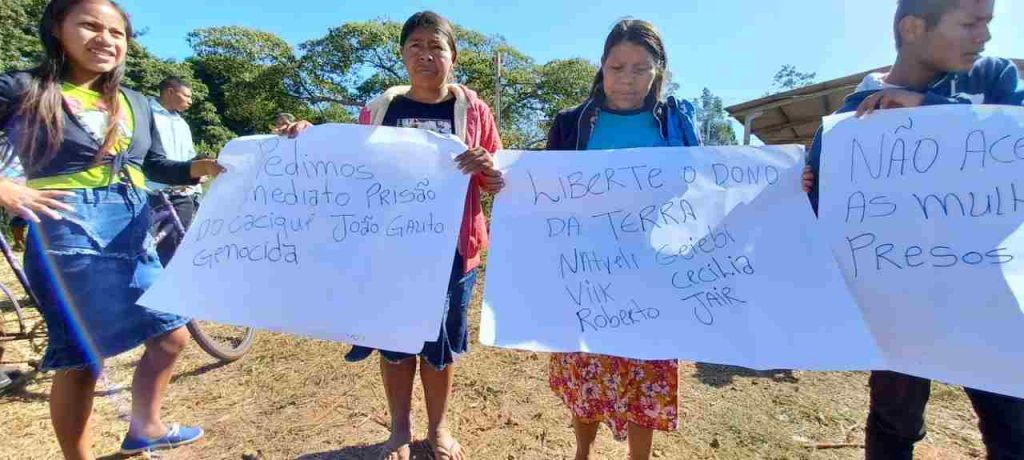 Pedimos
mediato Prisão
do cacique João Gauto
Genocida
LIBERTE O DONO
DA TERRA
Natyeli Sejebi
Vilk Cecilia
Roberto JAIR
NÃO ACE
AS MULH
PRESOS